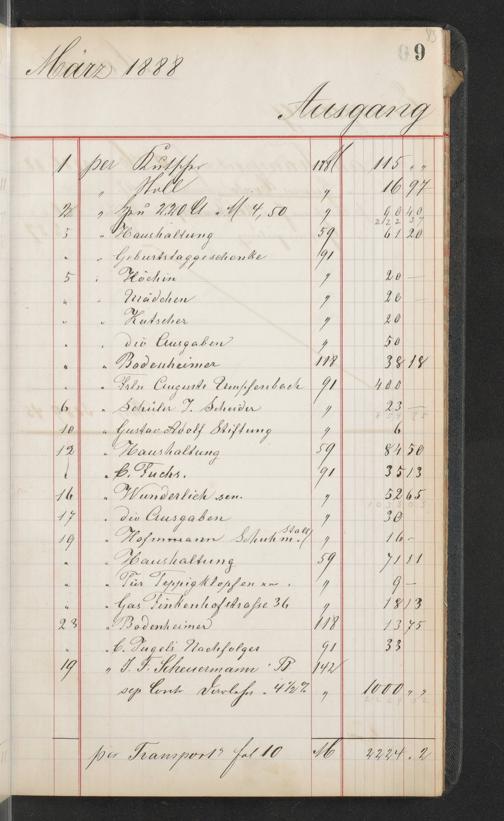 9
März 1888
Ausgang
1 per Kutscher 118 M 115 „ „
„ Holl „ 16 97
2 „ 220 lt „ M 4,50 „ 40 40
5 „ Haushaltung 59 61 20
„ „ Geburtstaggeschenke 91
5 „ Köchin „ 20 —
„ „ Mädchen „ 20 —
„ „ Kutscher „ 20
„ „ div Ausgaben „ 50
„ „ Bodenheimer 118 38 18
„ „ Frln Auguste Umpfenbach 91 400
6 „ Schüler J. Schuder „ 23 —
10 „ Gustav Adolf Stiftung „ 6
12 „ Haushaltung 59 84 50
„ C. Fuchs. 91 35 13
16 „ Wunderlich sen. „ 52 65
17 „ div Ausgaben „ 30
19 „ Hofmann Schuhm. „ 16 -
„ „ Haushaltung 59 71 11
„ „ Für Teppigklopfen „ 9 —
„ „ Gas Finkenhofstraße 36 „ 18 13
23 „ Bodenheimer 118 13 75
„ C. Jugels Nachfolger 91 33
19 „ J. F. Scheuermann 142
sep Cont Darlehn. 4½% „ 1000 „ „
per Transport fol 10 M 2224 . 2